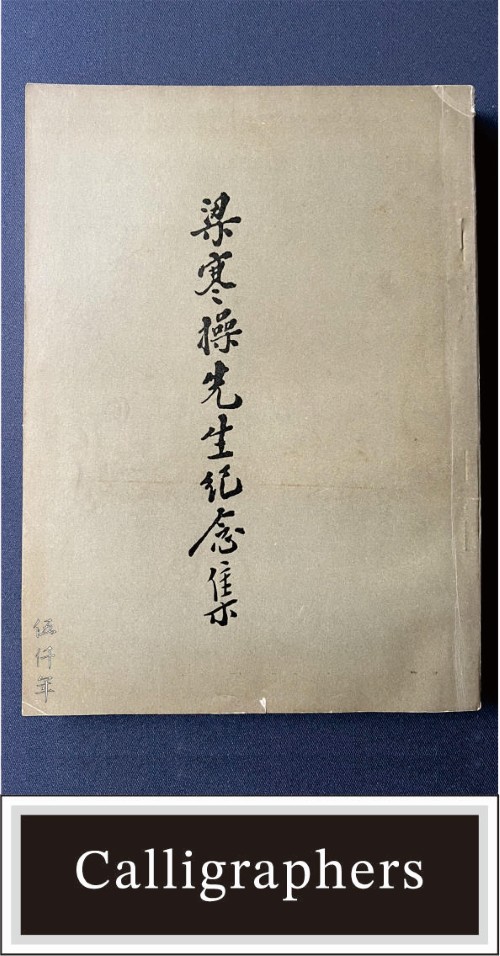 梁寒操先生纪念集
伍仟年
Calligraphers